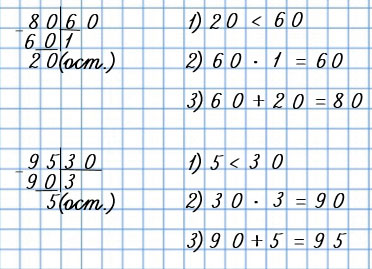 -80|60
60|1
20(ост.)
1) 20 < 60
2) 60 · 1 = 60
3) 60 + 20 = 80
-95|30
90|3
5(ост.)
1) 5 < 30
2) 30 · 3 = 90
3) 90 + 5 = 95